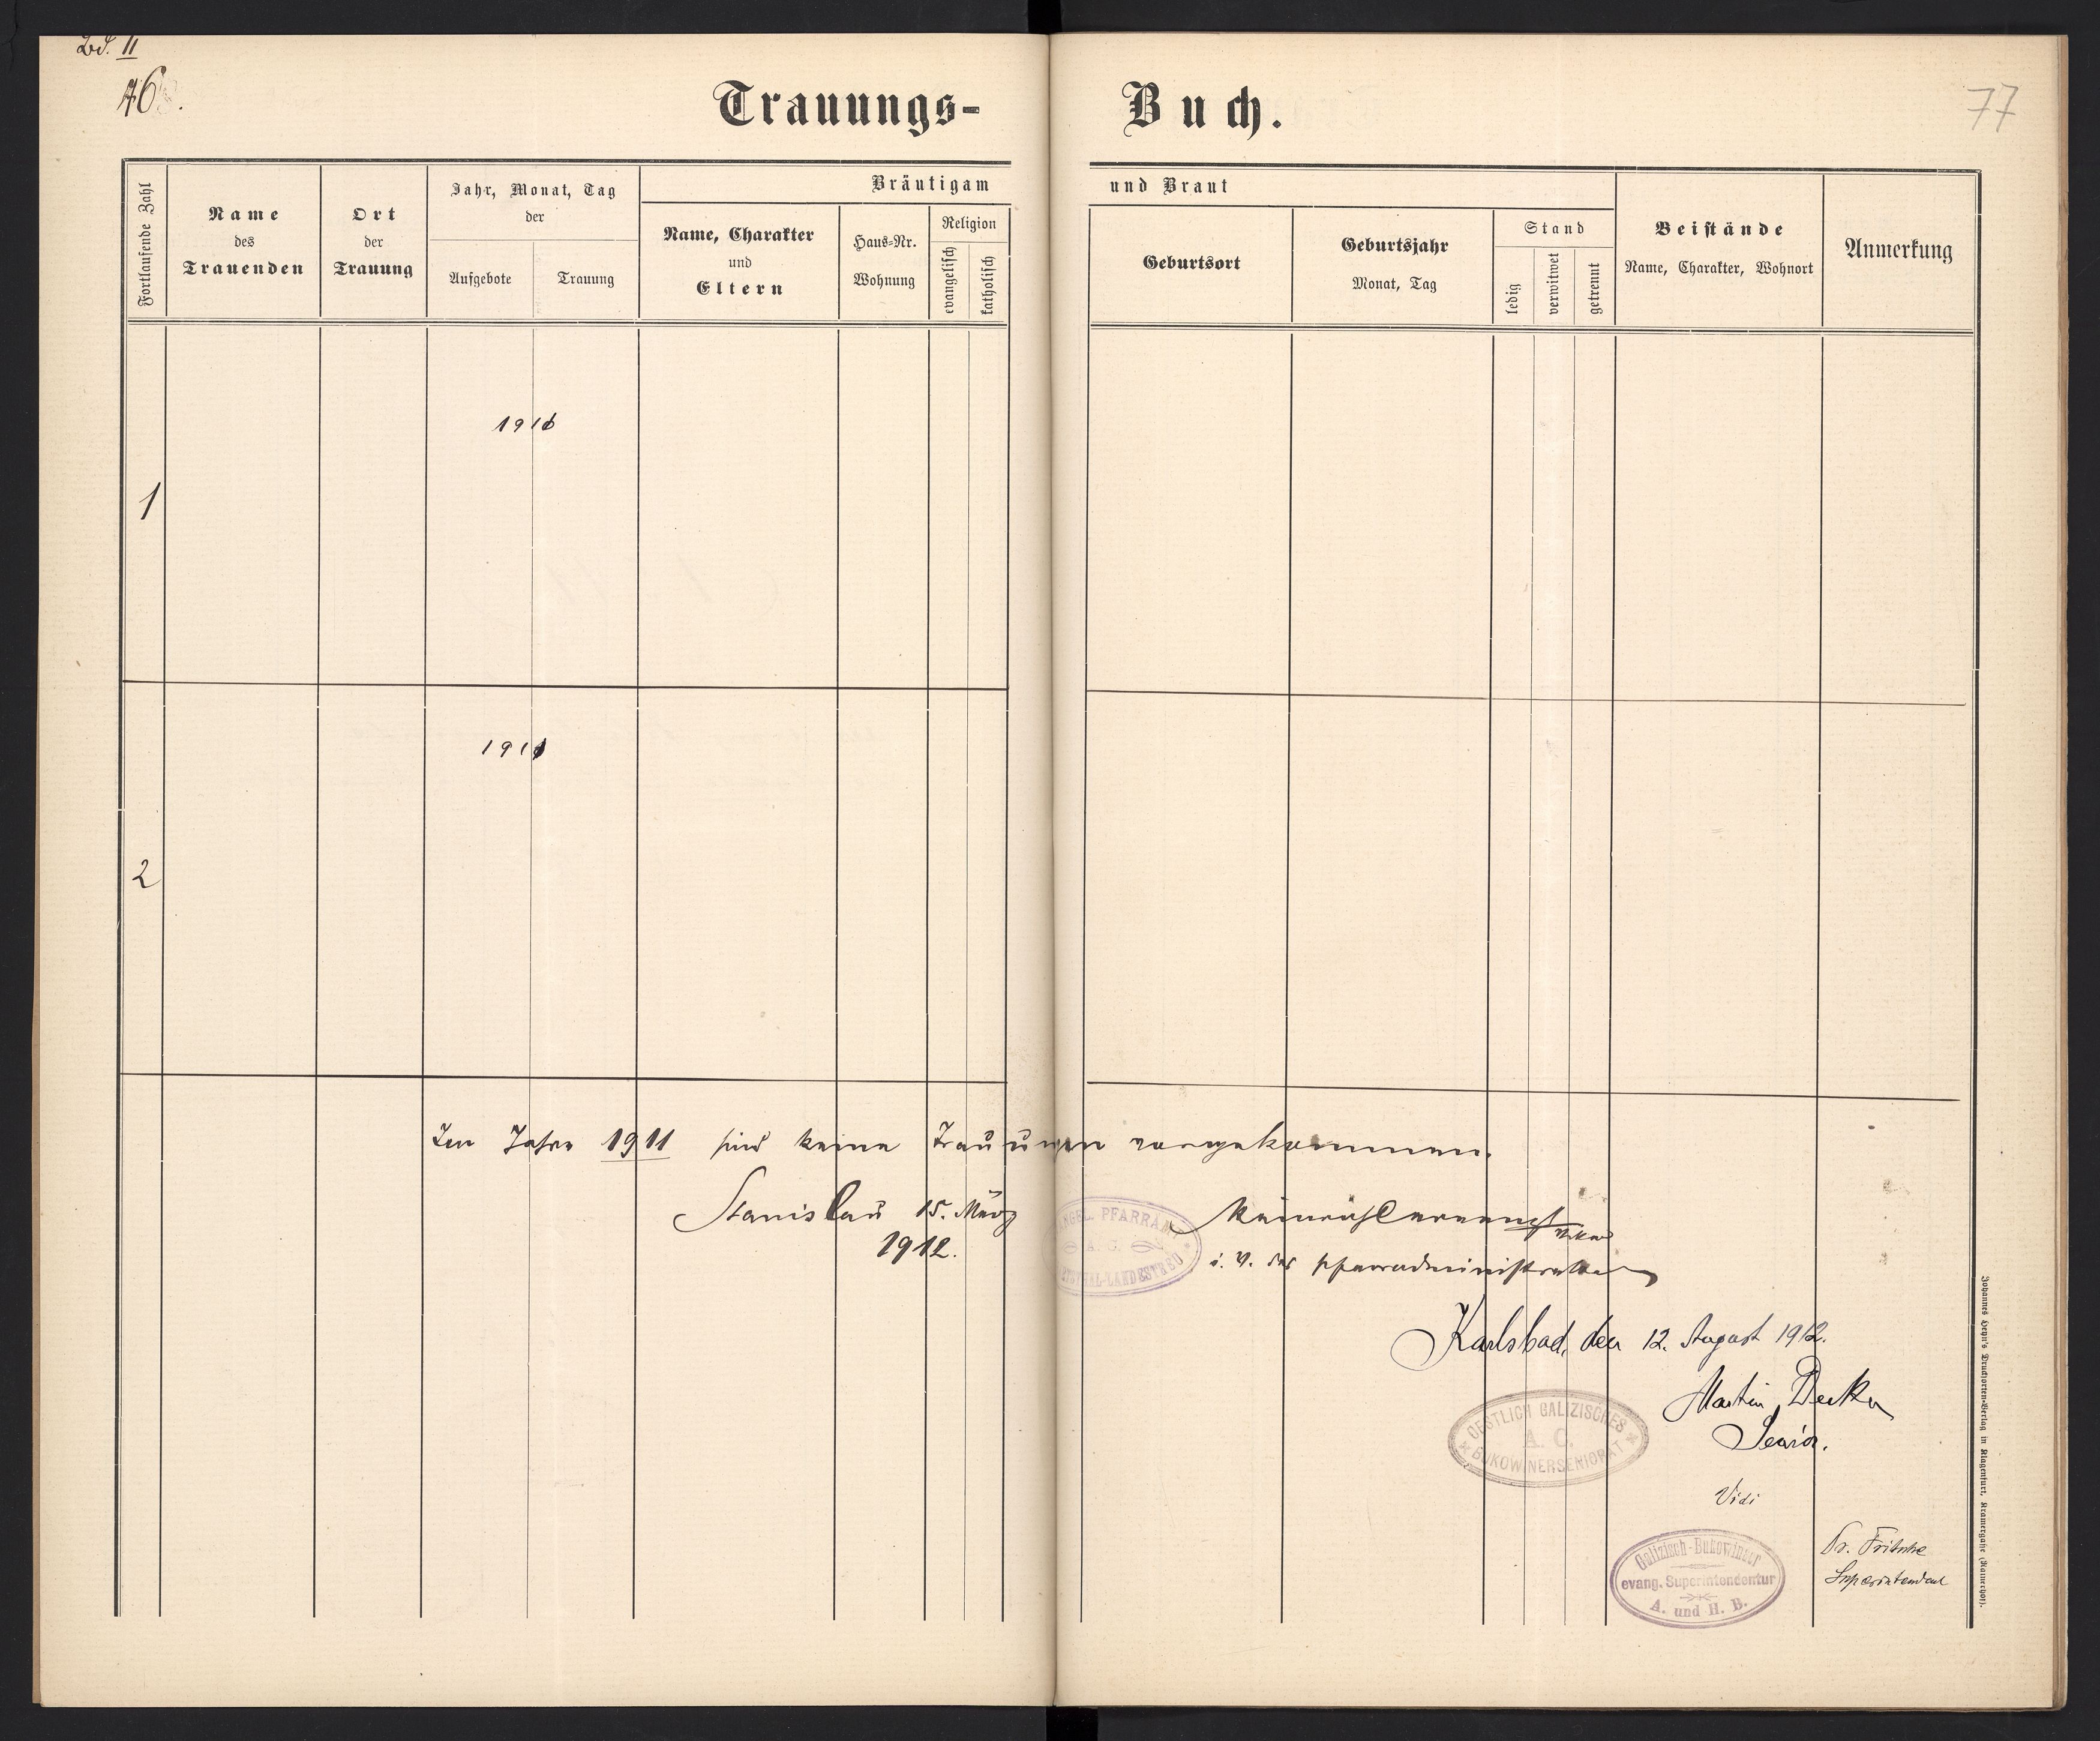 Bd. II
46.
77
Trauungs-Buch.
Fortlaufende Zahl
Name
des
Trauenden
Ort
der
Trauung
Jahr, Monat, Tag
der
Aufgebote
Trauung
Bräutigam und Braut
Name, Charakter
und
Eltern
Haus-Nr.
Wohnung
Religion
evangelisch
katholisch
Geburtsort
Geburtsjahr
Monat, Tag
Stand
ledig
verwitwet
getrennt
Beistände
Name, Charakter, Wohnort
Anmerkung
1
2
Im Jahre 1911 sind keine Trauungen vorgekommen.
Stanislau 15. März
1912.
PFARRAMT
A. C.
LANDESTREU
i. V. des Pfarradministrators
Karlsbad, den 12. August 1912.
Martin Decker
Senior.
OESTLICH GALIZISCHES
A. C.
BUKOWINERSENIORAT
Vidi
Galizisch-Bukowiner
evang. Superintendentur
A. und H. B.
Dr. Fritsche
Superintendent
Johannes Heyn's Drucksorten-Verlag in Klagenfurt, Kramergasse